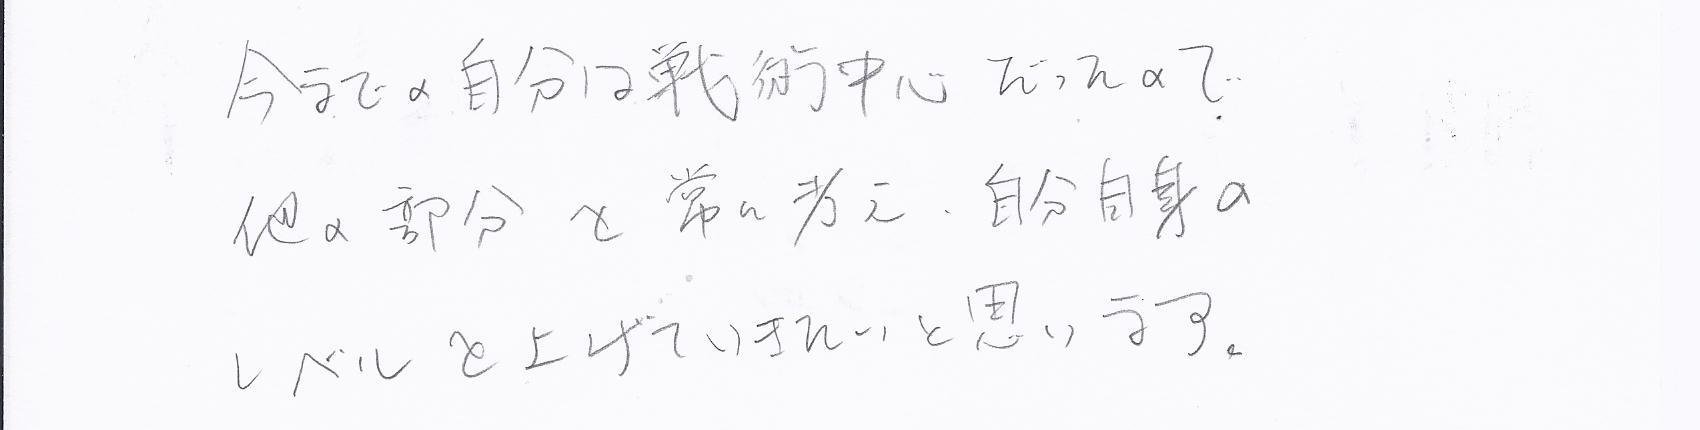 今までの自分は戦術中心だったので
他の部分を常に考え、自分自身の
レベルを上げていきたいと思います。